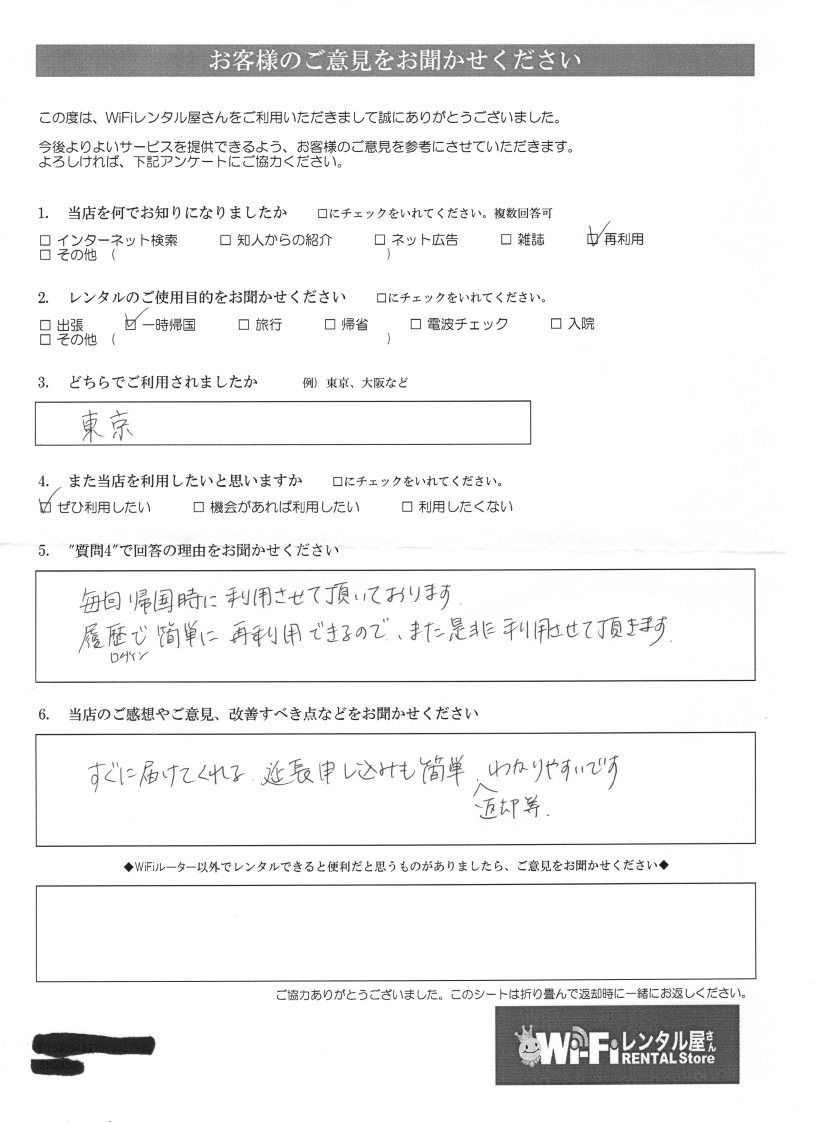 お客様のご意見をお聞かせください
この度は、WiFiレンタル屋さんをご利用いただきまして誠にありがとうございました。
今後よりよいサービスを提供できるよう、お客様のご意見を参考にさせていただきます。
よろしければ、下記アンケートにご協力ください。
1. 当店を何でお知りになりましたか □にチェックをいれてください。複数回答可
□ インターネット検索 □ 知人からの紹介 □ ネット広告 □ 雑誌 ☑ 再利用
□ その他 ( )
2. レンタルのご使用目的をお聞かせください □にチェックをいれてください。
□ 出張 ☑ 一時帰国 □ 旅行 □ 帰省 □ 電波チェック □ 入院
□ その他 ( )
3. どちらでご利用されましたか 例）東京、大阪など
東京
4. また当店を利用したいと思いますか □にチェックをいれてください。
☑ ぜひ利用したい □ 機会があれば利用したい □ 利用したくない
5. "質問4"で回答の理由をお聞かせください
毎回帰国時に利用させて頂いております.
履歴で簡単に再利用できるので、また是非利用させて頂きます.
ログイン
6. 当店のご感想やご意見、改善すべき点などをお聞かせください
すぐに届けてくれる. 延長申し込みも簡単. わかりやすいです
返却等.
◆WiFiルーター以外でレンタルできると便利だと思うものがありましたら、ご意見をお聞かせください◆
ご協力ありがとうございました。このシートは折り畳んで返却時に一緒にお返しください。
Wi-Fiレンタル屋さん
RENTAL Store